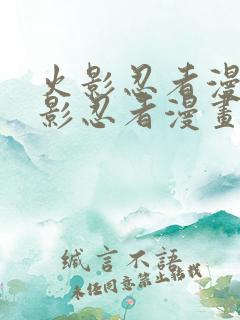 火影忍者漫
影忍者漫畫
缄言不語
未经同意禁止转载